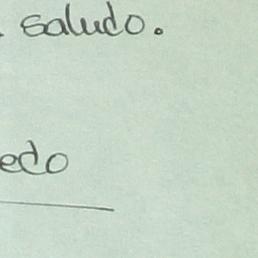 saludo.
edo